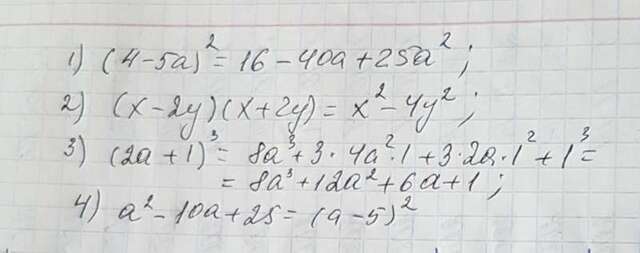 1) (4-5a)² = 16 - 40a + 25a²;
2) (x-2y)(x+2y) = x² - 4y²;
3) (2a+1)³ = 8a³ + 3·4a²·1 + 3·2a·1² + 1³ =
= 8a³ + 12a² + 6a + 1;
4) a² - 10a + 25 = (a-5)²